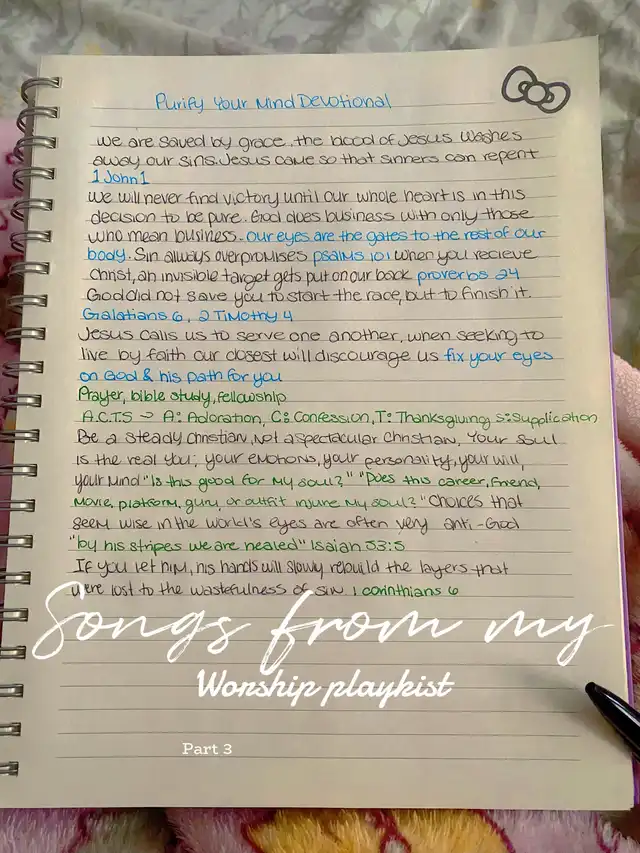 Purify Your Mind Devotional
we are saved by grace. the blood of Jesus washes
away our sins. Jesus came so that sinners can repent
1 John 1
we will never find victory until our whole heart is in this
decision to be pure. God does business with only those
who mean business. our eyes are the gates to the rest of our
body. Sin always overpromises psalms 101 when you recieve
Christ, an invisible target gets put on our back proverbs 24
God did not save you to start the race, but to finish it.
Galatians 6, 2 Timothy 4
Jesus calls us to serve one another, when seeking to
live by faith our closest will discourage us fix your eyes
on God & his path for you
Prayer, bible study, fellowship
A.C.T.S → A: Adoration, C: Confession, T: Thanksgiving S: Supplication
Be a steady christian, Not a spectacular christian, Your soul
is the real you, your emotions, your personality, your will,
your mind "Is this good for my soul?" "Does this career, friend,
movie, platform, guru, or outfit injure my soul?" Choices that
seem wise in the world's eyes are often very anti-God
"by his stripes we are healed" Isaiah 53:5
If you let him, his hands will slowly rebuild the layers that
were lost to the wastefulness of sin 1 corinthians 6
Songs from my
Worship playkist
Part 3